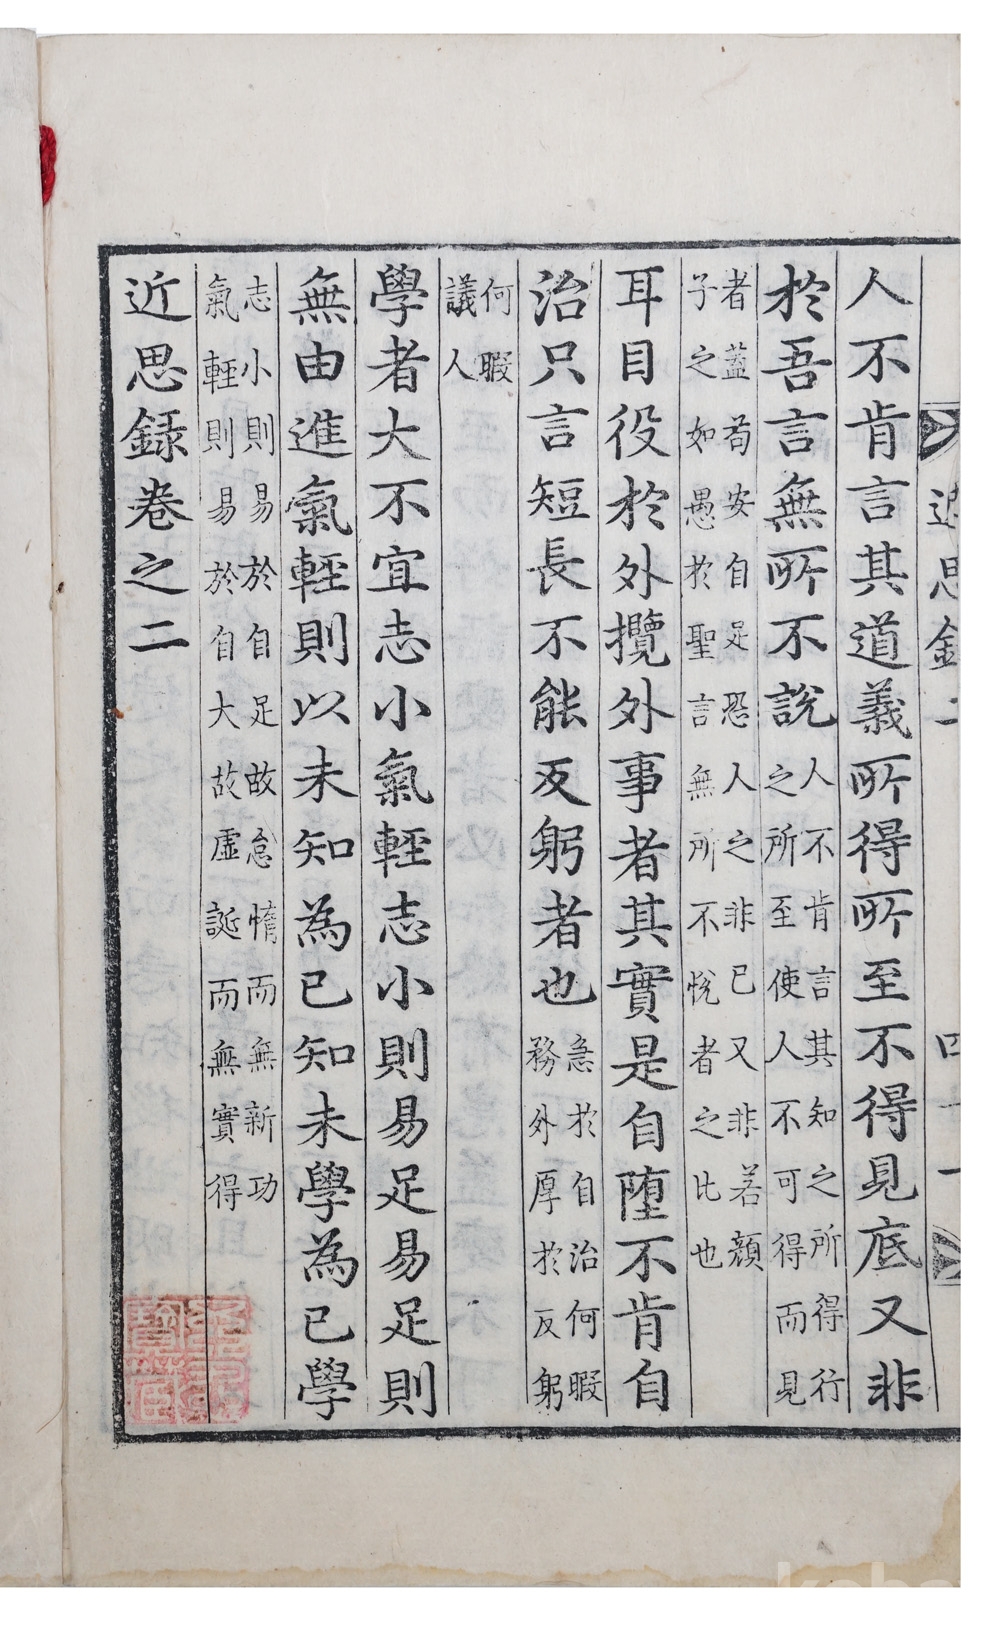 近思錄二
四十一
人不肯言其道義所得所至不得見底又非
於吾言無所不說人不肯言其知之所得行
之所至使人不可得而見
者蓋苟安自足恐人之非已又非若顏
子之如愚於聖言無所不悅者之比也
耳目役於外攬外事者其實是自墮不肯自
治只言短長不能反躬者也急於自治何暇
務外厚於反躬
何暇
議人
學者大不宜志小氣輕志小則易足易足則
無由進氣輕則以未知為已知未學為已學
志小則易於自足故怠惰而無新功
氣輕則易於自大故虛誕而無實得
近思錄卷之二